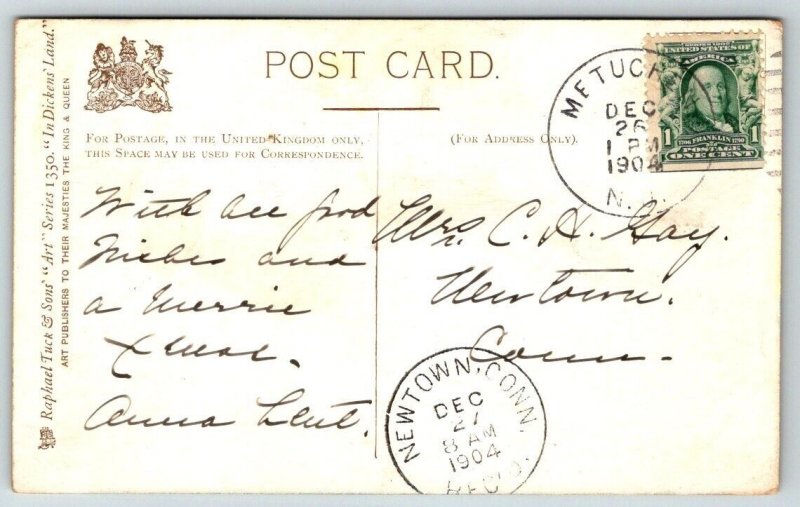 POST CARD.
FOR POSTAGE, IN THE UNITED KINGDOM ONLY,
THIS SPACE MAY BE USED FOR CORRESPONDENCE.
(FOR ADDRESS ONLY).
Raphael Tuck & Sons' "Art" Series 1330. "In Dickens' Land."
ART PUBLISHERS TO THEIR MAJESTIES THE KING & QUEEN
With all good
Wishes and
a Merrie
Xmas.
Anna
Mrs. C. H. Gay.
Newtown.
Conn.
METUCH
DEC
26
1 PM
1904
N.J.
SERIES 1902
UNITED STATES OF
AMERICA
1 1
1706 FRANKLIN 1790
POSTAGE
ONE CENT
NEWTOWN, CONN.
DEC
27
8 AM
1904
REC'D.